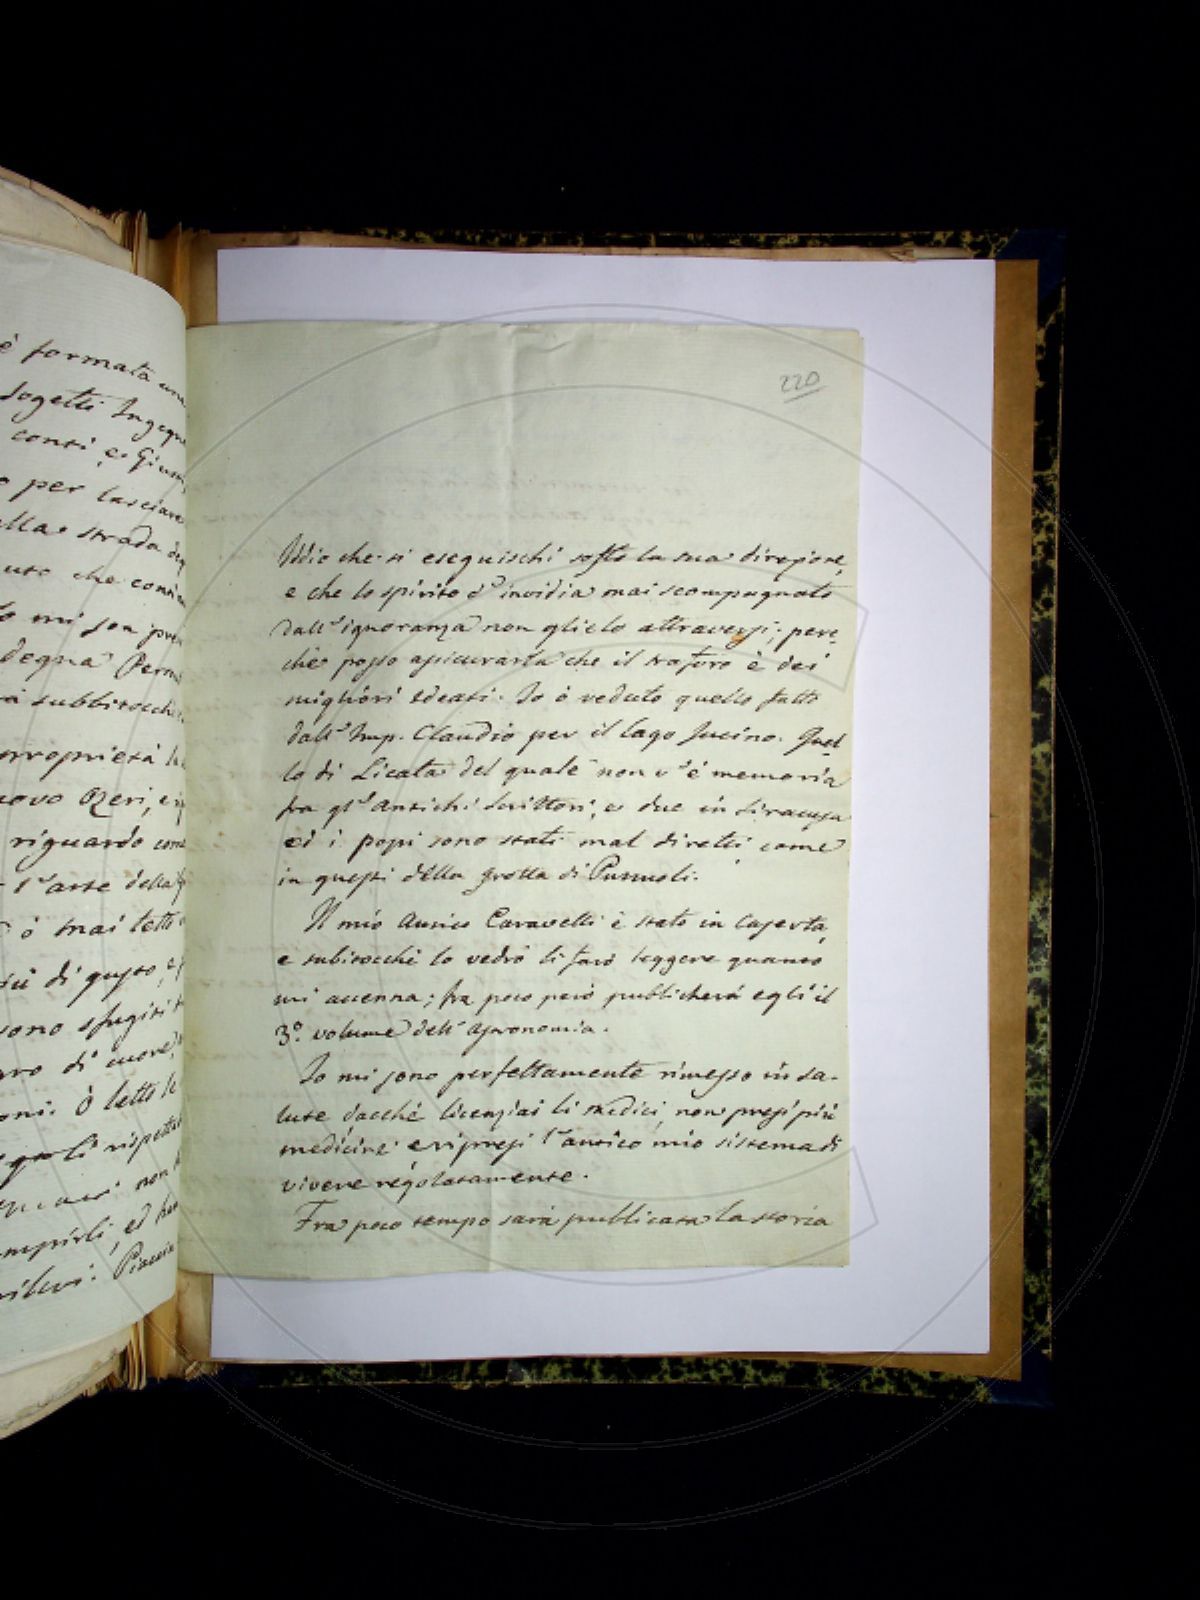 è formata una
sogetti Ingegn
conti, e Giun
per lasciare
alla strada deg
mi son pre
degna Perm
subbitocch
proprietà
novo Ozeri, e
riguardo com
l'arte della
ò mai letto
più di gusto, e
sono sfugiti
di cuore,
oni. Ò letto le
rispettab
non
mpirli, ed ha
Piaccia
220
Iddio che si eseguischi sotto la sua direzione,
e che lo spirito d'invidia mai scompagnato
dall'ignoranza non glielo attraversi; per-
chè posso assicurarla che il traforo è dei
migliori ideati. Io ò veduto quello fatto
dall'Imp. Claudio per il lago Fucino. Quel-
lo di Licata del quale non v'è memoria
fra gl'antichi scrittori, e due in Siracusa
ed i pozzi sono stati mal diretti come
in questi della grotta di Puzzuoli.
Il mio amico Caravelli è stato in Caserta,
e subitocchè lo vedrò li farò leggere quanto
mi accenna; fra poco però publicherà egli il
3º. volume dell'Astronomia.
Io mi sono perfettamente rimesso in sa-
lute dacchè licenziai li medici, non presi più
medicine e ripresi l'antico mio sistema di
vivere regolatamente.
Fra poco tempo sarà publicata la storia